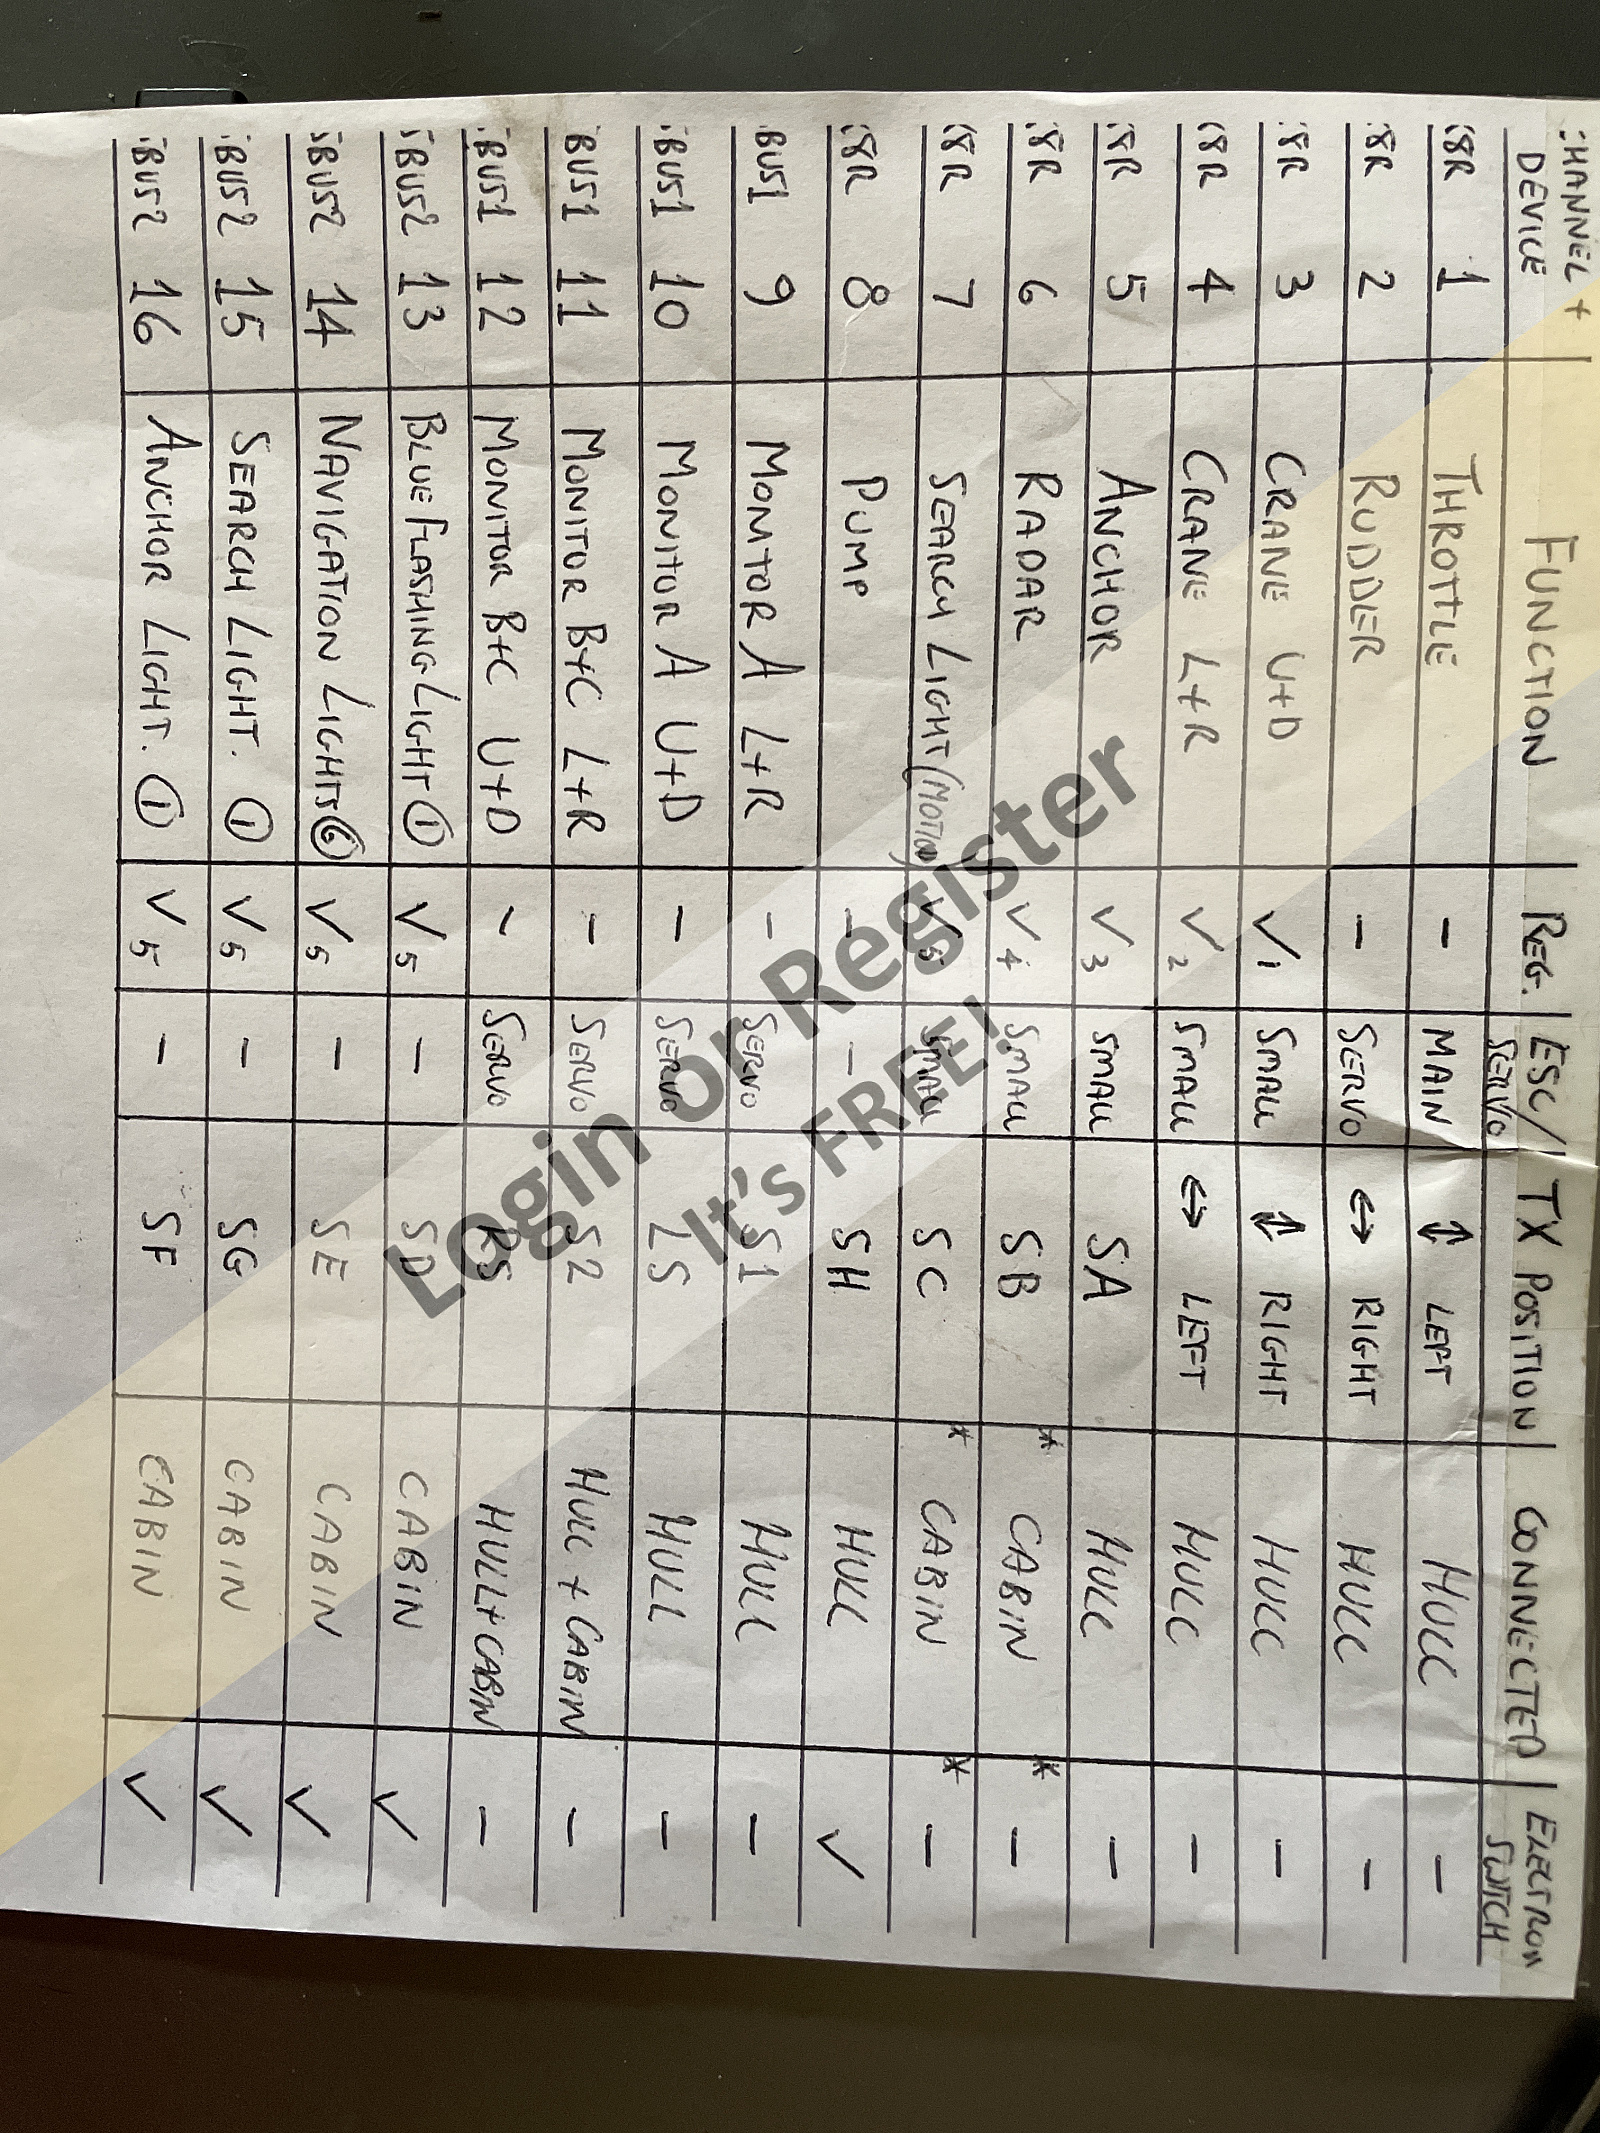 CHANNEL + DEVICE | FUNCTION | REG. | ESC/ SERVO | TX POSITION | CONNECTED | ELECTRON SWITCH
X8R 1 THROTTLE - MAIN ↕ LEFT HULL -
X8R 2 RUDDER - SERVO ↔ RIGHT HULL -
X8R 3 CRANE U+D √1 SMALL ↕ RIGHT HULL -
X8R 4 CRANE L+R √2 SMALL ↔ LEFT HULL -
X8R 5 ANCHOR √3 SMALL SA HULL -
X8R 6 RADAR √4 SMALL SB * CABIN * -
X8R 7 SEARCH LIGHT (MOTION) √5 SMALL SC * CABIN * -
X8R 8 PUMP - - SH HULL √
:BUS1 9 MONITOR A L+R - SERVO S1 HULL -
:BUS1 10 MONITOR A U+D - SERVO LS HULL -
:BUS1 11 MONITOR B+C L+R - SERVO S2 HULL + CABIN -
:BUS1 12 MONITOR B+C U+D - SERVO RS HULL+CABIN -
SBUS2 13 BLUE FLASHING LIGHT ① √5 - SD CABIN √
SBUS2 14 NAVIGATION LIGHTS ⑥ √5 - SE CABIN √
:BUS2 15 SEARCH LIGHT. ① √5 - SG CABIN √
:BUS2 16 ANCHOR LIGHT. ① √5 - SF CABIN √
Login or Register
It's FREE!